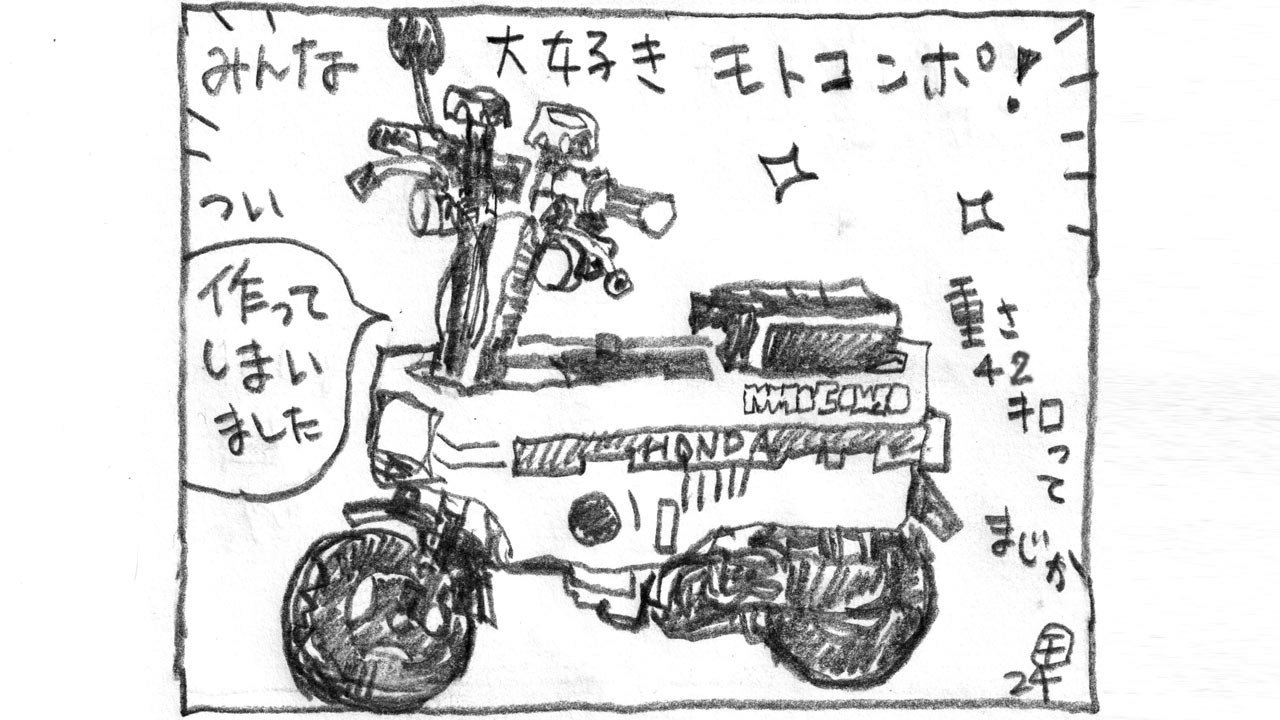 みんな 大好き モトコンポ!
つい
作って
しまい
ました
HONDA
重さ
42
キロって
まじか
24